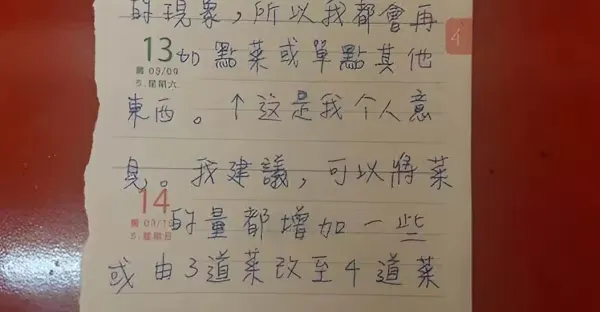 的現象，所以我都會再
4
13
加點菜或單點其他
S.星期六
東西。↑这是我个人意
見。我建議，可以將菜
14
的量都增加一些
或由3道菜改至4道菜